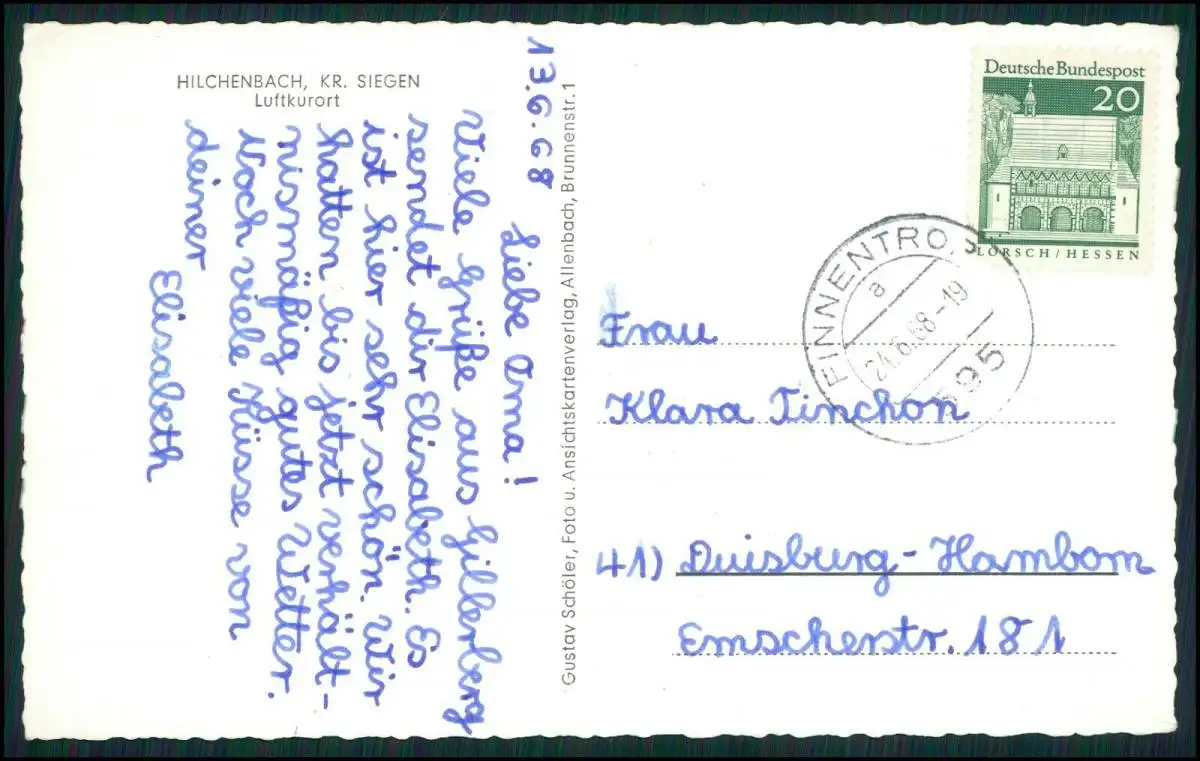 HILCHENBACH, KR. SIEGEN
Luftkurort
13.6.68
Liebe Oma!
Viele Grüße aus Gillerberg
sendet dir Elisabeth. Es
ist hier sehr schön. Wir
hatten bis jetzt verhält-
nismäßig gutes Wetter.
Noch viele Küsse von
deiner
Elisabeth
Gustav Schöler, Foto u. Ansichtskartenverlag, Allenbach, Brunnenstr. 1
Deutsche Bundespost
20
LORSCH/HESSEN
FINNENTROP
a
6.68-19
595
Frau
Klara Tinchon
41) Duisburg-Hamborn
Emscherstr. 181